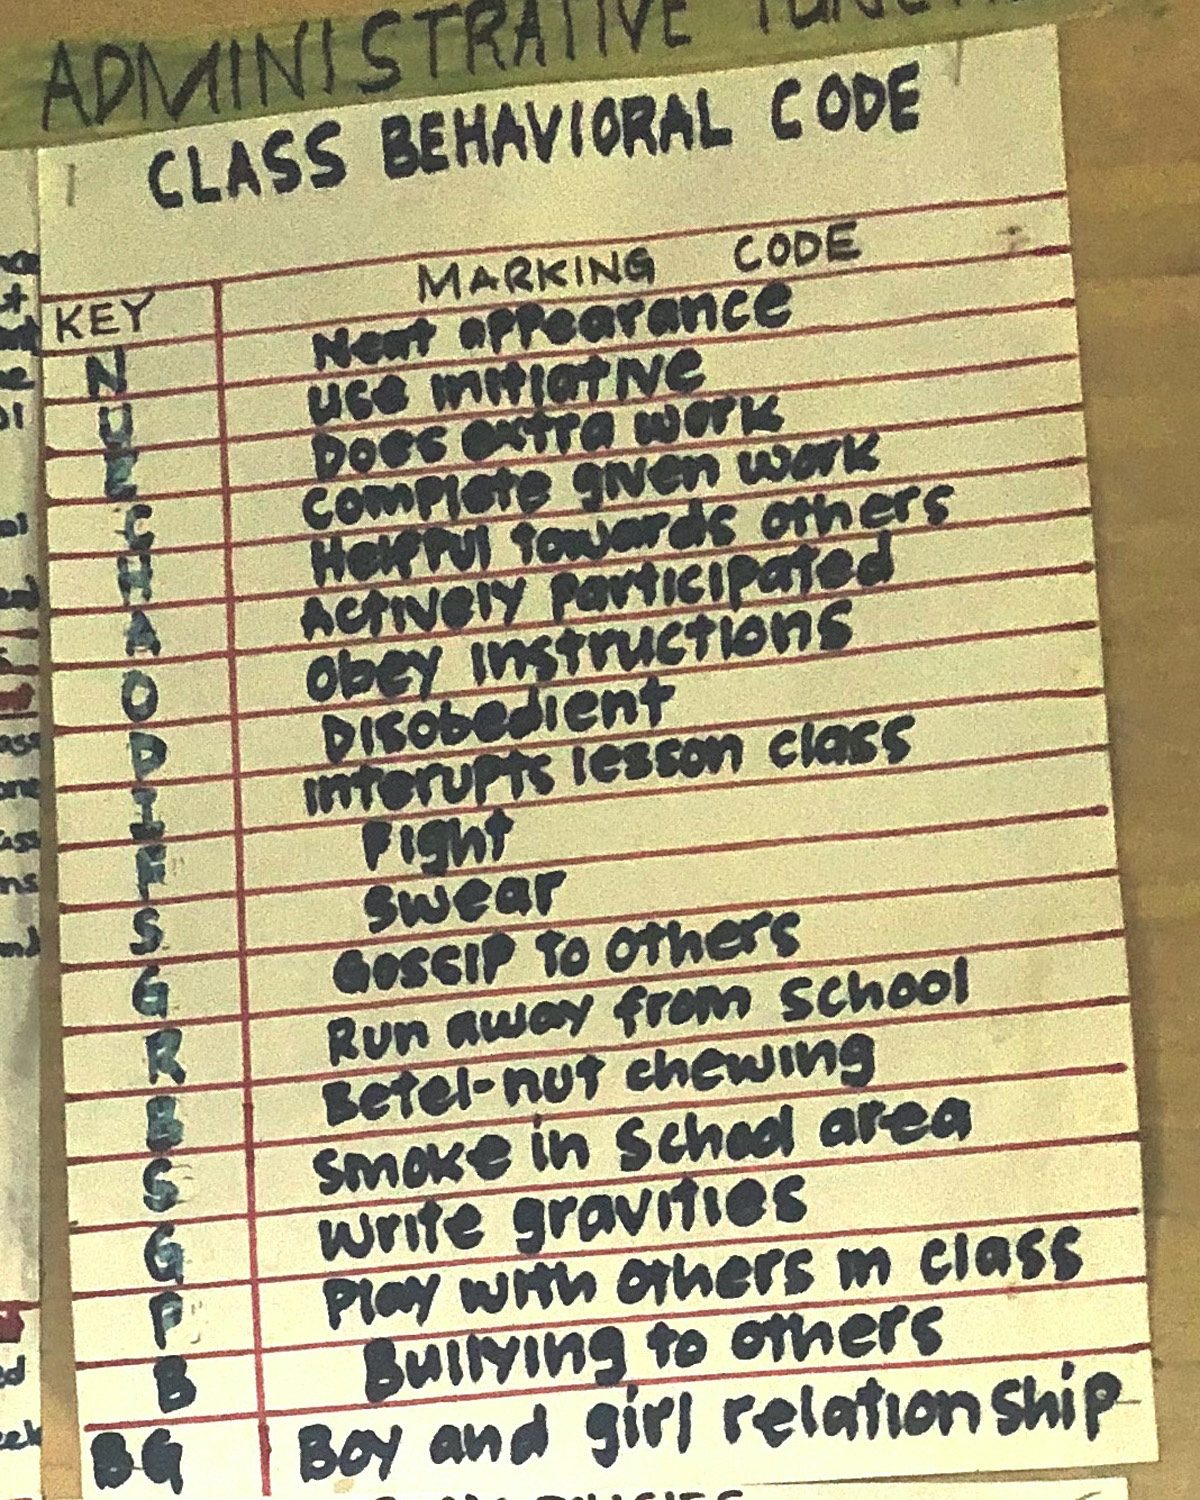 ADMINISTRATIVE
CLASS BEHAVIORAL CODE
KEY MARKING CODE
N Neat appearance
U Use initiative
E Does extra work
C Complete given work
H Helpful towards others
A Actively participated
O Obey instructions
D Disobedient
I Interupts lesson class
F Fight
S Swear
G Gossip to others
R Run away from school
B Betel-nut chewing
S Smoke in school area
G Write gravities
P Play with others in class
B Bullying to others
BG Boy and girl relationship